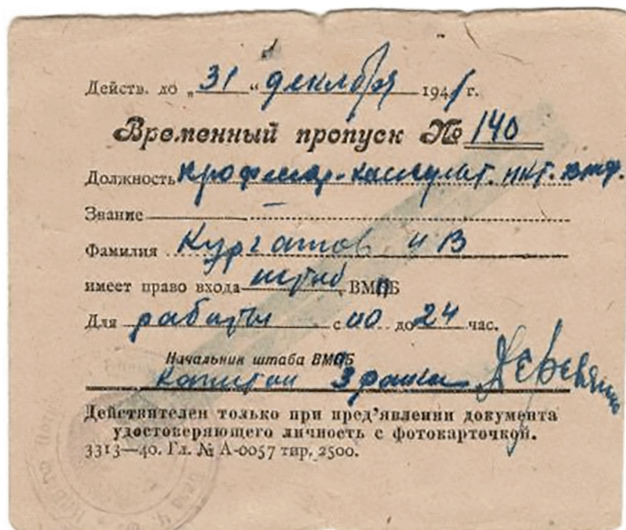 Действ. до „31“ декабря 194 г.
Временный пропуск № 140
Должность профессор-консульт.
Звание
Фамилия Курчатов И В
имеет право входа штаб ВМБ
Для работы с 00 до 24 час.
Начальник штаба ВМБ
капитан 3 ранга
Действителен только при пред’явлении документа
удостоверяющего личность с фотокарточкой.
3313—40. Гл. № А-0057 тир. 2500.